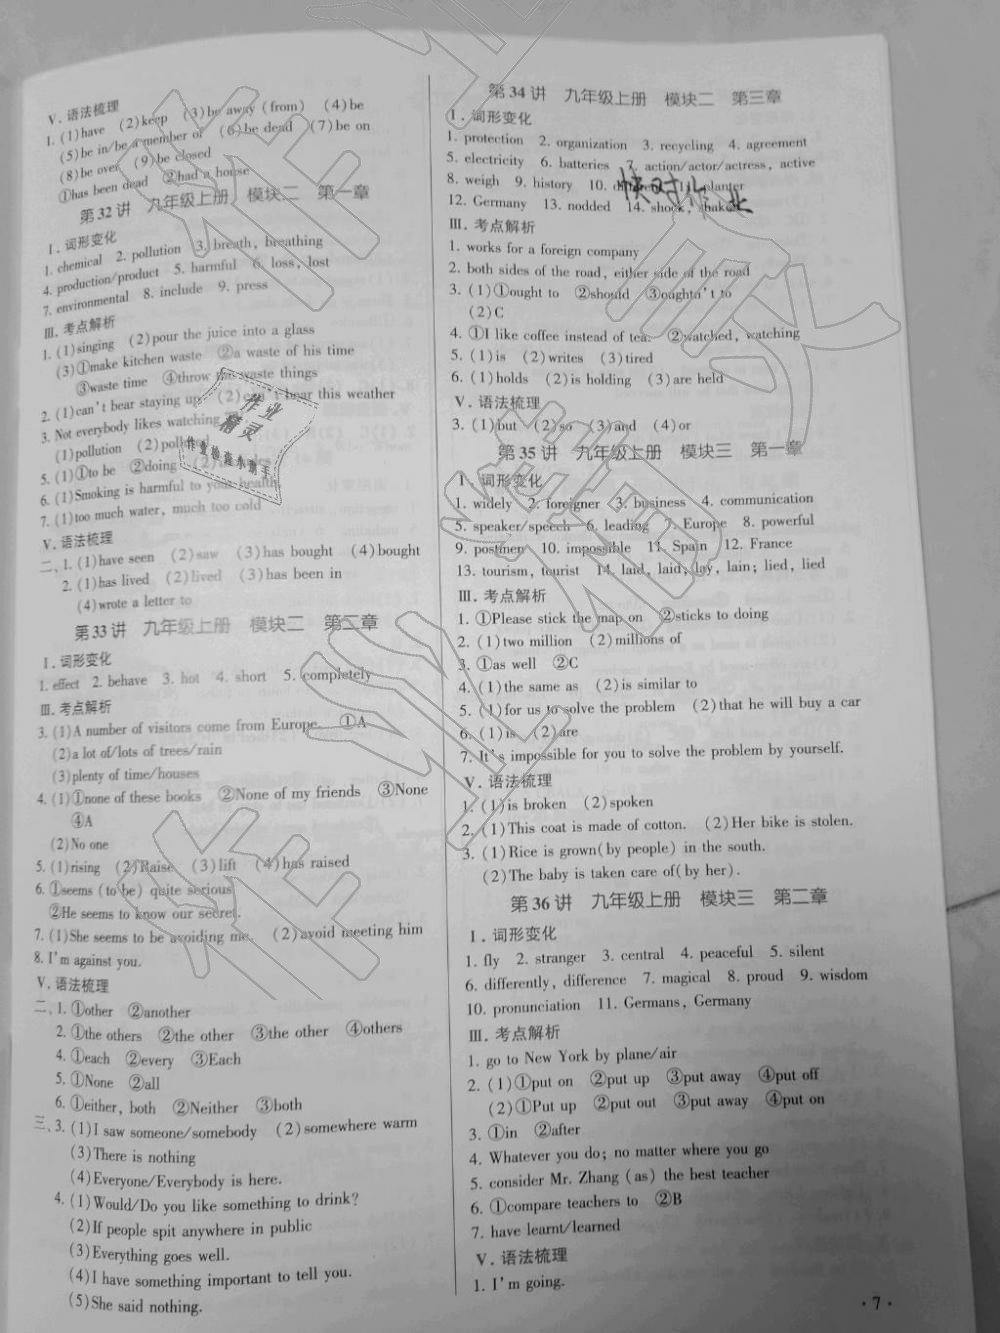 V. 语法梳理
1. (1)have (2)keep (3)be away (from) (4)be
(5)be in/be a member of (6)be dead (7)be on
(8)be over (9)be closed
①has been dead ②had a house
第 32 讲 九年级上册 模块二 第一章
I. 词形变化
1. chemical 2. pollution 3. breath, breathing
4. production/product 5. harmful 6. loss, lost
7. environmental 8. include 9. press
III. 考点解析
1. (1)singing (2)pour the juice into a glass
(3)①make kitchen waste ②a waste of his time
③waste time ④throw the waste things
2. (1)can't bear staying up (2)can't bear this weather
3. Not everybody likes watching
(1)pollution (2)polluted
5. (1)①to be ②doing
6. (1)Smoking is harmful to your health.
7. (1)too much water, much too cold
V. 语法梳理
二、1. (1)have seen (2)saw (3)has bought (4)bought
2. (1)has lived (2)lived (3)has been in
(4)wrote a letter to
第 33 讲 九年级上册 模块二 第二章
I. 词形变化
1. effect 2. behave 3. hot 4. short 5. completely
III. 考点解析
3. (1)A number of visitors come from Europe. ①A
(2)a lot of/lots of trees/rain
(3)plenty of time/houses
4. (1)①none of these books ②None of my friends ③None
④A
(2)No one
5. (1)rising (2)Raise (3)lift (4)has raised
6. ①seems (to be) quite serious
②He seems to know our secret.
7. (1)She seems to be avoiding me. (2)avoid meeting him
8. I'm against you.
V. 语法梳理
二、1. ①other ②another
2. ①the others ②the other ③the other ④others
4. ①each ②every ③Each
5. ①None ②all
6. ①either, both ②Neither ③both
三、3. (1)I saw someone/somebody (2)somewhere warm
(3)There is nothing
(4)Everyone/Everybody is here.
4. (1)Would/Do you like something to drink?
(2)If people spit anywhere in public
(3)Everything goes well.
(4)I have something important to tell you.
(5)She said nothing.
第 34 讲 九年级上册 模块二 第三章
I. 词形变化
1. protection 2. organization 3. recycling 4. agreement
5. electricity 6. batteries 7. action/actor/actress, active
8. weigh 9. history 10. 11. planter
12. Germany 13. nodded 14. shook, shaken
III. 考点解析
1. works for a foreign company
2. both sides of the road, either side of the road
3. (1)①ought to ②should ③oughtn't to
(2)C
4. ①I like coffee instead of tea. ②watched, watching
5. (1)is (2)writes (3)tired
6. (1)holds (2)is holding (3)are held
V. 语法梳理
3. (1)but (2)so (3)and (4)or
第 35 讲 九年级上册 模块三 第一章
I. 词形变化
1. widely 2. foreigner 3. business 4. communication
5. speaker/speech 6. leading 7. Europe 8. powerful
9. postmen 10. impossible 11. Spain 12. France
13. tourism, tourist 14. laid, laid; lay, lain; lied, lied
III. 考点解析
1. ①Please stick the map on ②sticks to doing
2. (1)two million (2)millions of
3. ①as well ②C
4. (1)the same as (2)is similar to
5. (1)for us to solve the problem (2)that he will buy a car
6. (1)is (2)are
7. It's impossible for you to solve the problem by yourself.
V. 语法梳理
1. (1)is broken (2)spoken
2. (1)This coat is made of cotton. (2)Her bike is stolen.
3. (1)Rice is grown(by people) in the south.
(2)The baby is taken care of(by her).
第 36 讲 九年级上册 模块三 第二章
I. 词形变化
1. fly 2. stranger 3. central 4. peaceful 5. silent
6. differently, difference 7. magical 8. proud 9. wisdom
10. pronunciation 11. Germans, Germany
III. 考点解析
1. go to New York by plane/air
2. (1)①put on ②put up ③put away ④put off
(2)①Put up ②put out ③put away ④put on
3. ①in ②after
4. Whatever you do; no matter where you go
5. consider Mr. Zhang (as) the best teacher
6. ①compare teachers to ②B
7. have learnt/learned
V. 语法梳理
1. I'm going.
· 7 ·
快对作业
作业
精灵
作业检查小助手